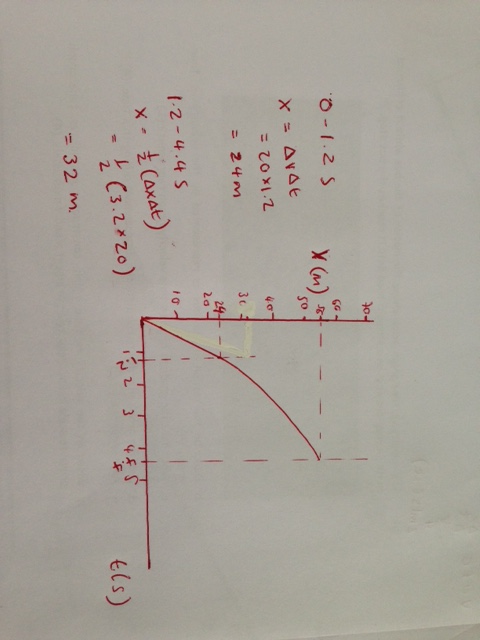 0 - 1.2 s
x = ΔvΔt
= 20 × 1.2
= 24m
1.2 - 4.4 s
x = ½ (ΔxΔt)
= ½ (3.2 × 20)
= 32 m
X (m)
70
60
56
50
40
20
24
10
1.2
2
3
4
5
t(s)